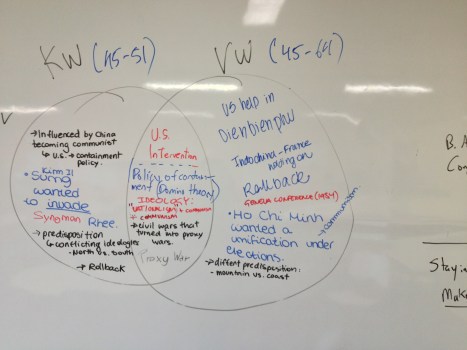 KW (45-51)
VW (45-64)
→Influenced by China
becoming communist
↳ U.S. → containment
policy.
Kim Il
• Sung
wanted
to invade
Syngman Rhee.
→predisposition
↳conflicting ideologies
- North vs. South
→ Rollback
U.S.
Intervention
Policy of contain-
ment (Domino theory)
IDEOLOGY:
→civil wars that
turned into proxy
wars.
Proxy War
US help in
Dienbienphu
Indochina - France
holding on
Rollback
GENEVA CONFERENCE (1954)
• Ho Chi Minh
wanted a
unification under
elections.
→communism
→different predisposition:
- mountain vs. coast
B. A
Stayi
Make